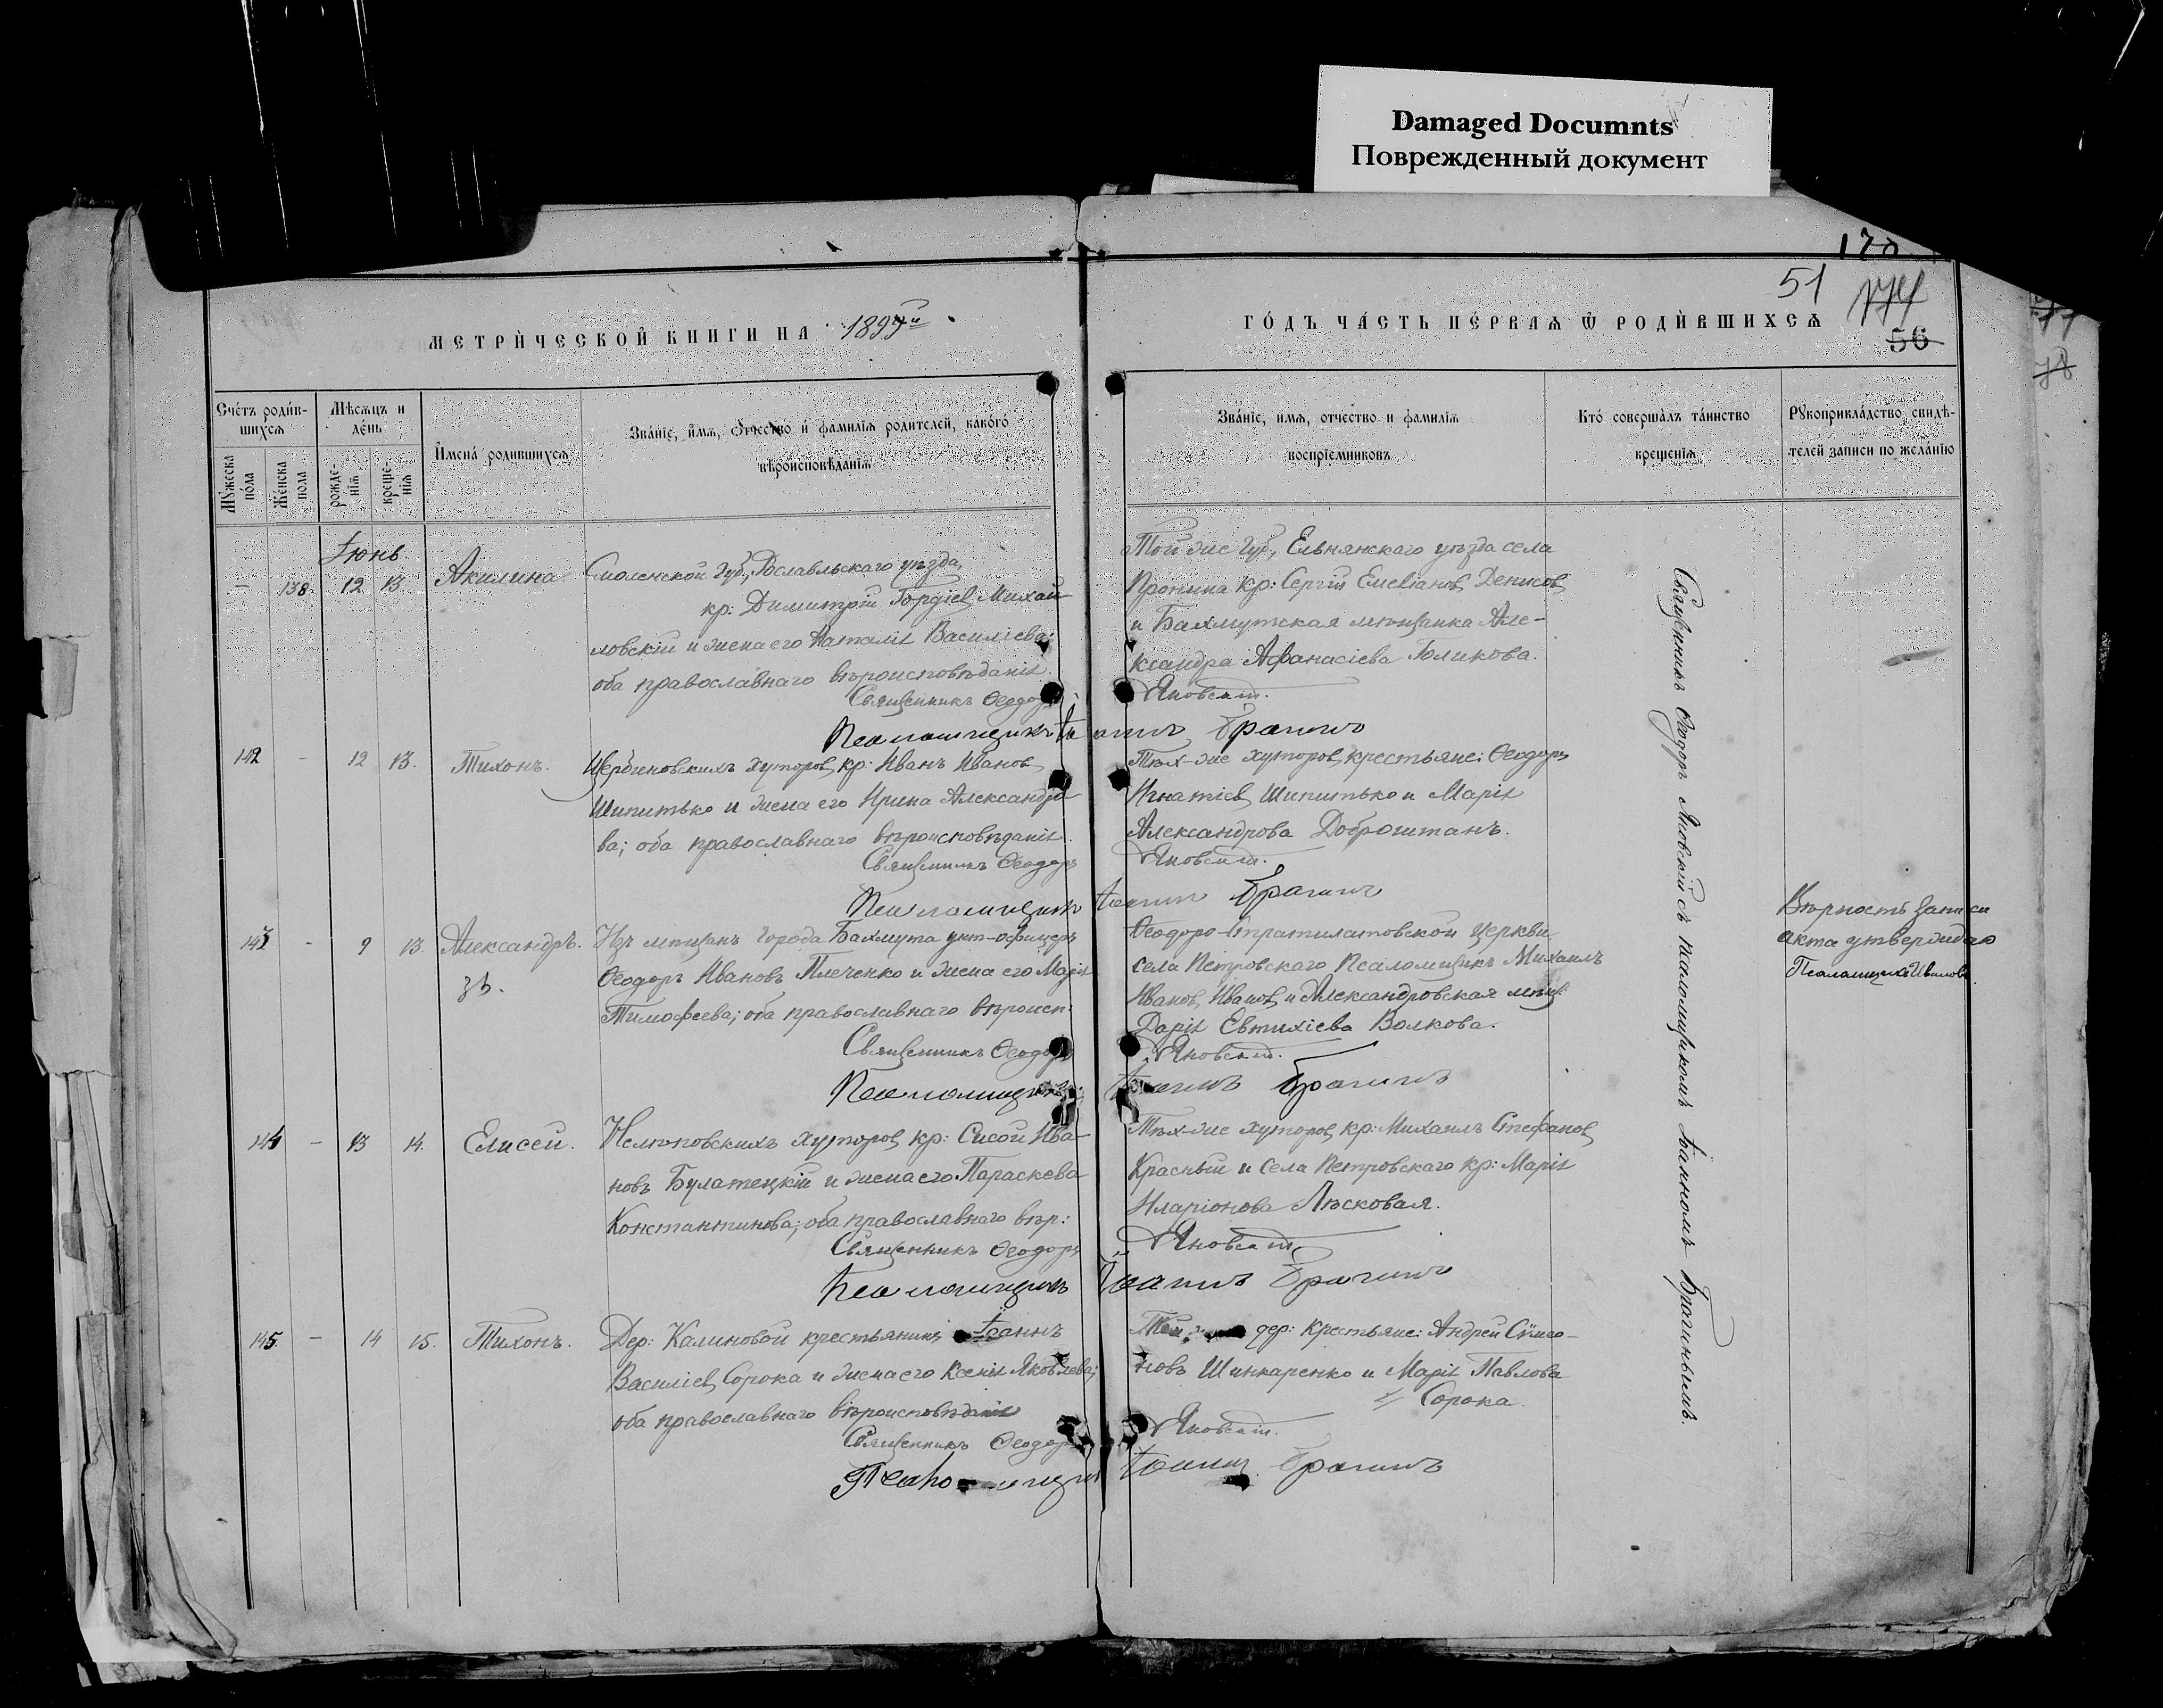 Damaged Documnts
Поврежденный документ
51
56
МЕТРИ́ЧЕСКОЙ КНИГИ НА 1897й
ГО́ДЪ ЧА́СТЬ ПЕ́РВАѦ Ѿ РОДИ́ВШИХСѦ
Сче́тъ роди́в-
шихсѧ
Мѣсѧцъ и
де́нь
Мꙋжеска
по́ла
Же́нска
пола
рожде-
нїѧ
креще-
нїѧ
И҆мена́ родившихсѧ
Зва́нїе, и҆́мѧ, ѻтчество и҆ фамилїѧ родителей, како́го
вѣроисповѣданїѧ
Зва́нїе, имѧ, отчество и фамилїѧ
воспрїемниковъ
Кто́ соверша̀лъ та́инство
креще́нїѧ
Рꙋкоприкла́дство свидѣ-
телей записи по жела́нїю
Іюнь
— 138. 12 13. Акилина.
Смоленской губ., Рославльскаго уѣзда,
кр: Димитрій Гордіевъ Михай-
ловскій и жена его Наталія Василіева;
оба православнаго вѣроисповѣданія.
Священникъ Ѳеодоръ
Псаломщикъ
Той же губ., Ельнянскаго уѣзда села
Пронина кр: Сергій Емеліановъ Денисовъ
и Бахмутская мѣщанка Але-
ксандра Афанасіева Голикова.
Яновскій.
Іоаннъ Брагинъ
142 - 12 13. Тихонъ.
Щербиновскихъ хуторовъ кр: Иванъ Ивановъ
Шипитько и жена его Ирина Александро-
ва; оба православнаго вѣроисповѣданія.
Священникъ Ѳеодоръ
Псаломщикъ
Тѣх-же хуторовъ крестьяне: Ѳеодоръ
Игнатіевъ Шипитько и Марія
Александрова Доброштанъ.
Яновскій.
Іоаннъ Брагинъ
143 - 9 13. Александръ.
зѣ.
Изъ мѣщанъ города Бахмута унт-офицеръ
Ѳеодоръ Ивановъ Плеченко и жена его Марія
Тимофеева; оба православнаго вѣроисп.
Священникъ Ѳеодоръ
Псаломщикъ
Ѳеодоро-Стратилатовской церкви
села Петровскаго Псаломщикъ Михаилъ
Ивановъ Ивановъ и Александровская мѣщ.
Дарія Евтихіева Волкова.
Яновскій.
Іоаннъ Брагинъ
Вѣрность записи
акта утверждаю
Псаломщикъ Ивановъ.
144 - 13 14. Елисей.
Нелѣповскихъ хуторовъ кр: Сисой Ива-
новъ Булатецкій и жена его Параскева
Константинова; оба православнаго вѣр:
Священникъ Ѳеодоръ
Псаломщикъ
Тѣх-же хуторовъ кр: Михаилъ Стефановъ
Красный и села Петровскаго кр: Марія
Иларіонова Лѣсковая.
Яновскій
Іоаннъ Брагинъ
145. - 14 15. Тихонъ.
Дер: Калиновой крестьянинъ Іоаннъ
Василіевъ Сорока и жена его Ксенія Яковлева;
оба православнаго вѣроисповѣданія
Священникъ Ѳеодоръ
Псаломщикъ
Той дер: крестьяне: Андрей Сѵмео-
новъ Шинкаренко и Марія Павлова
Сорока.
Яновскій.
Іоаннъ Брагинъ
Священникъ Ѳеодоръ Яновскій съ псаломщикомъ Іоанномъ Брагинымъ.